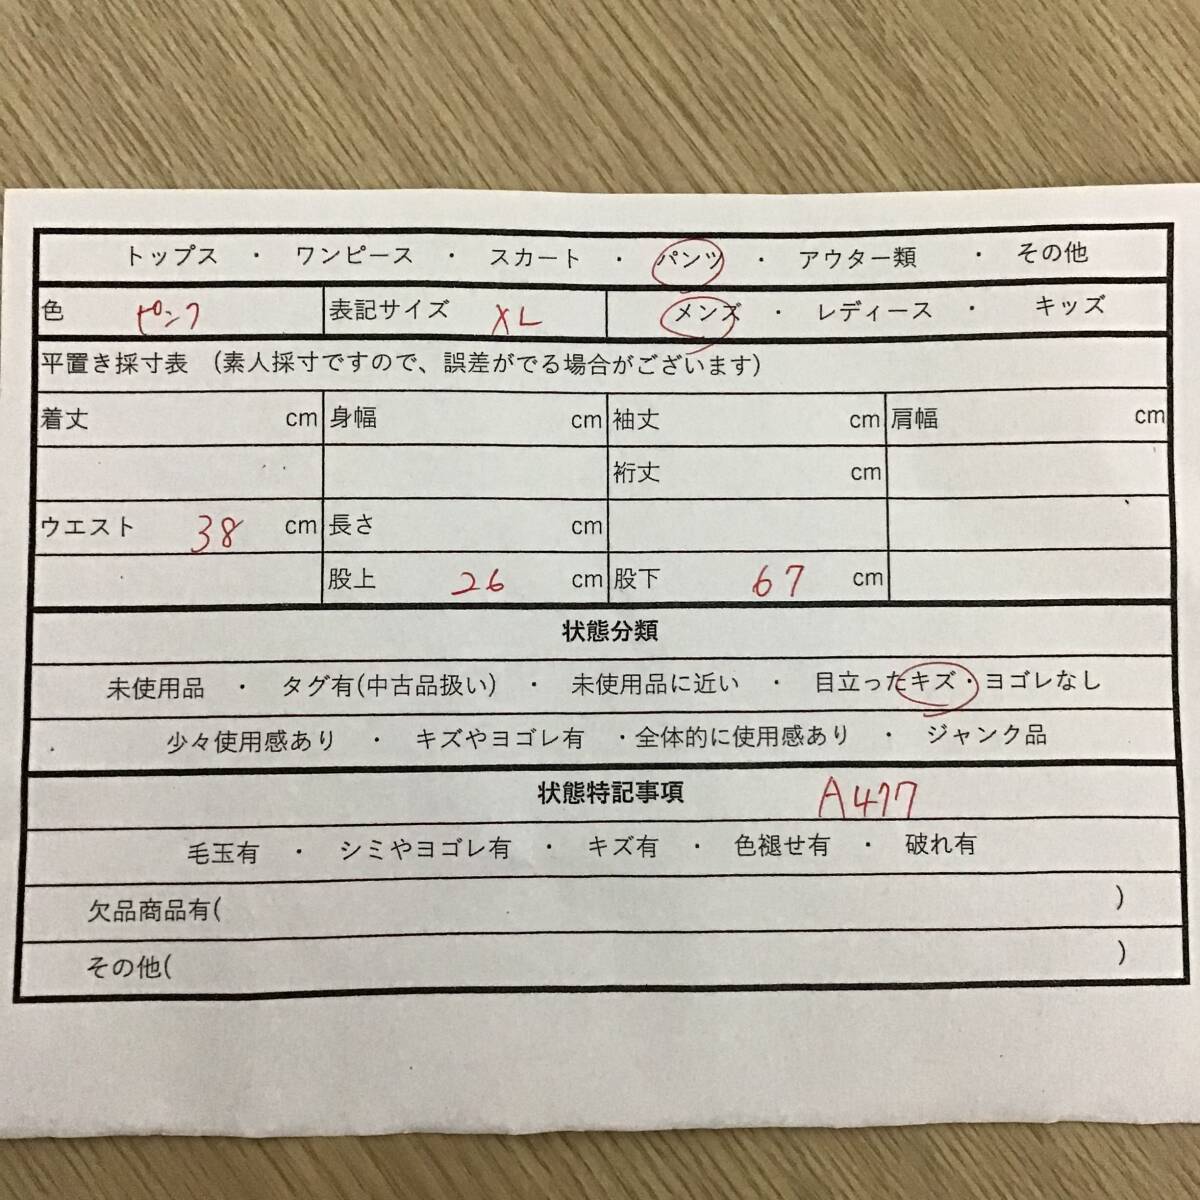 トップス ・ ワンピース ・ スカート ・ パンツ ・ アウター類 ・ その他
色 ピンク 表記サイズ XL メンズ ・ レディース ・ キッズ
平置き採寸表 (素人採寸ですので、誤差がでる場合がございます)
着丈 cm 身幅 cm 袖丈 cm 肩幅 cm
裄丈 cm
ウエスト 38 cm 長さ cm
股上 26 cm 股下 67 cm
状態分類
未使用品 ・ タグ有(中古品扱い) ・ 未使用品に近い ・ 目立ったキズ・ヨゴレなし
少々使用感あり ・ キズやヨゴレ有 ・全体的に使用感あり ・ ジャンク品
状態特記事項 A477
毛玉有 ・ シミやヨゴレ有 ・ キズ有 ・ 色褪せ有 ・ 破れ有
欠品商品有( )
その他( )